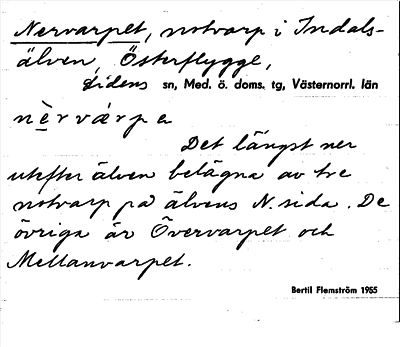 Nervarpet, notvarp i Indals-
älven, Österflygge,
Lidens sn, Med. ö. doms. tg, Västernorrl. län
nèrvárpa
Det längst ner
utefter älven belägna av tre
notvarp på älvens N. sida. De
övriga är Övervarpet och
Mellanvarpet.
Bertil Flemström 1955